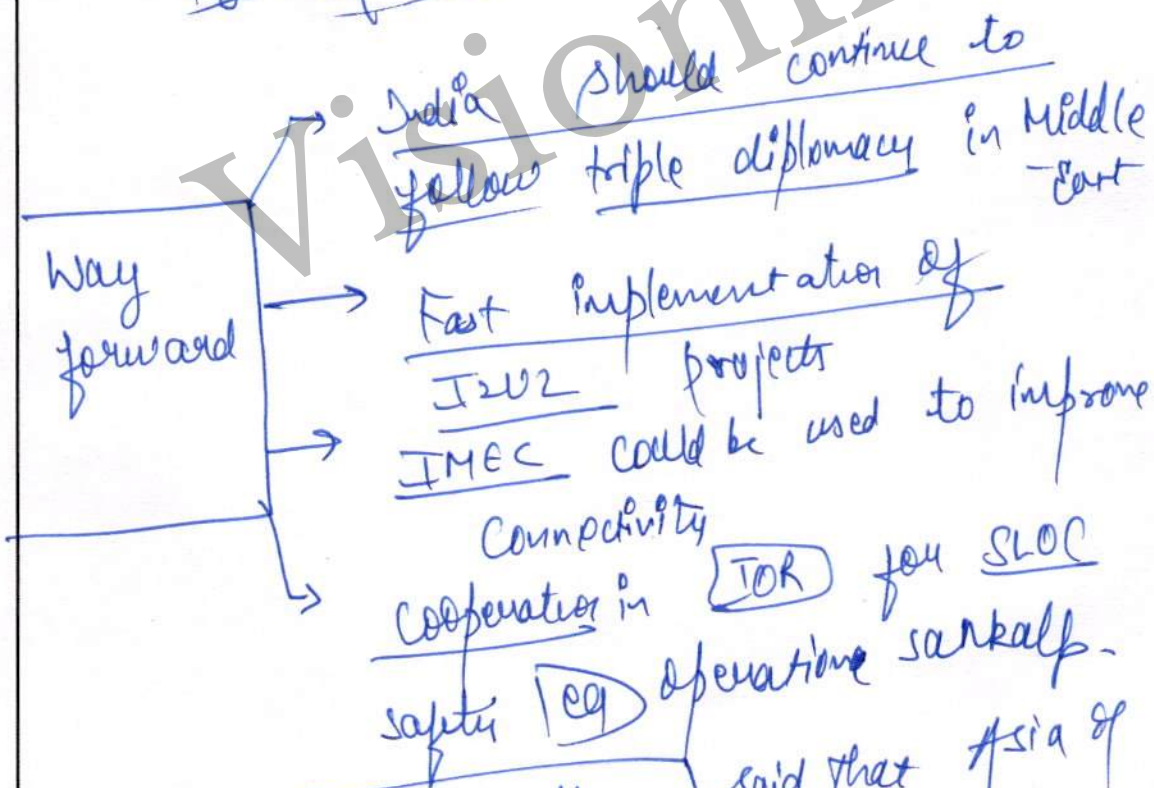 India should continue to
follow triple diplomacy in Middle
-East
Way
forward
Fast implementation of
I2U2 projects
IMEC could be used to improve
Connectivity
Cooperation in IOR for SLOC
safety eg operations sankalp.
said that Asia of
Vision